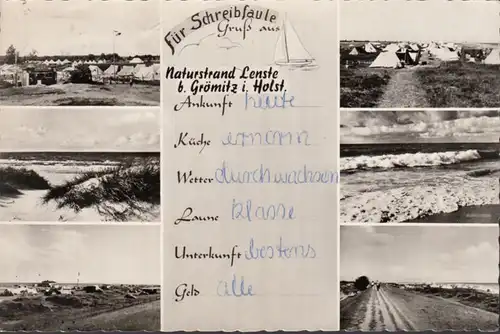 für Schreibfaule
Gruß aus
Naturstrand Lenste
b. Grömitz i. Holst.
Ankunft heute
Küche enorm
Wetter durchwachsen
Laune klasse
Unterkunft bestens
Geld alle